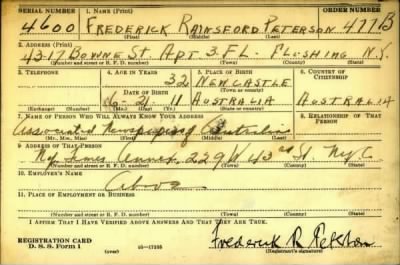 SERIAL NUMBER 1. NAME (Print) ORDER NUMBER
4600 FREDERICK RAINSFORD PETERSON 477B
(First) (Middle) (Last)
2. ADDRESS (Print)
4317 BOWNE ST. APT 3.FL. FLUSHING N.Y.
(Number and street or R. F. D. number) (Town) (County) (State)
3. TELEPHONE 4. AGE IN YEARS 5. PLACE OF BIRTH 6. COUNTRY OF CITIZENSHIP
32 NEWCASTLE
DATE OF BIRTH (Town or county)
6-21-11 AUSTRALIA AUSTRALIA
(Exchange) (Number) (Mo.) (Day) (Yr.) (State or country)
7. NAME OF PERSON WHO WILL ALWAYS KNOW YOUR ADDRESS 8. RELATIONSHIP OF THAT PERSON
Associated Newspapers of Australia
(Mr., Mrs., Miss) (First) (Middle) (Last)
9. ADDRESS OF THAT PERSON
NY Times Annex 229 W 43rd St. NYC
(Number and street or R. F. D. number) (Town) (County) (State)
10. EMPLOYER'S NAME
Above
11. PLACE OF EMPLOYMENT OR BUSINESS
(Number and street or R. F. D. number) (Town) (County) (State)
I AFFIRM THAT I HAVE VERIFIED ABOVE ANSWERS AND THAT THEY ARE TRUE.
REGISTRATION CARD
D. S. S. Form 1 (over) 16-17105 Frederick R Peterson
(Registrant's signature)